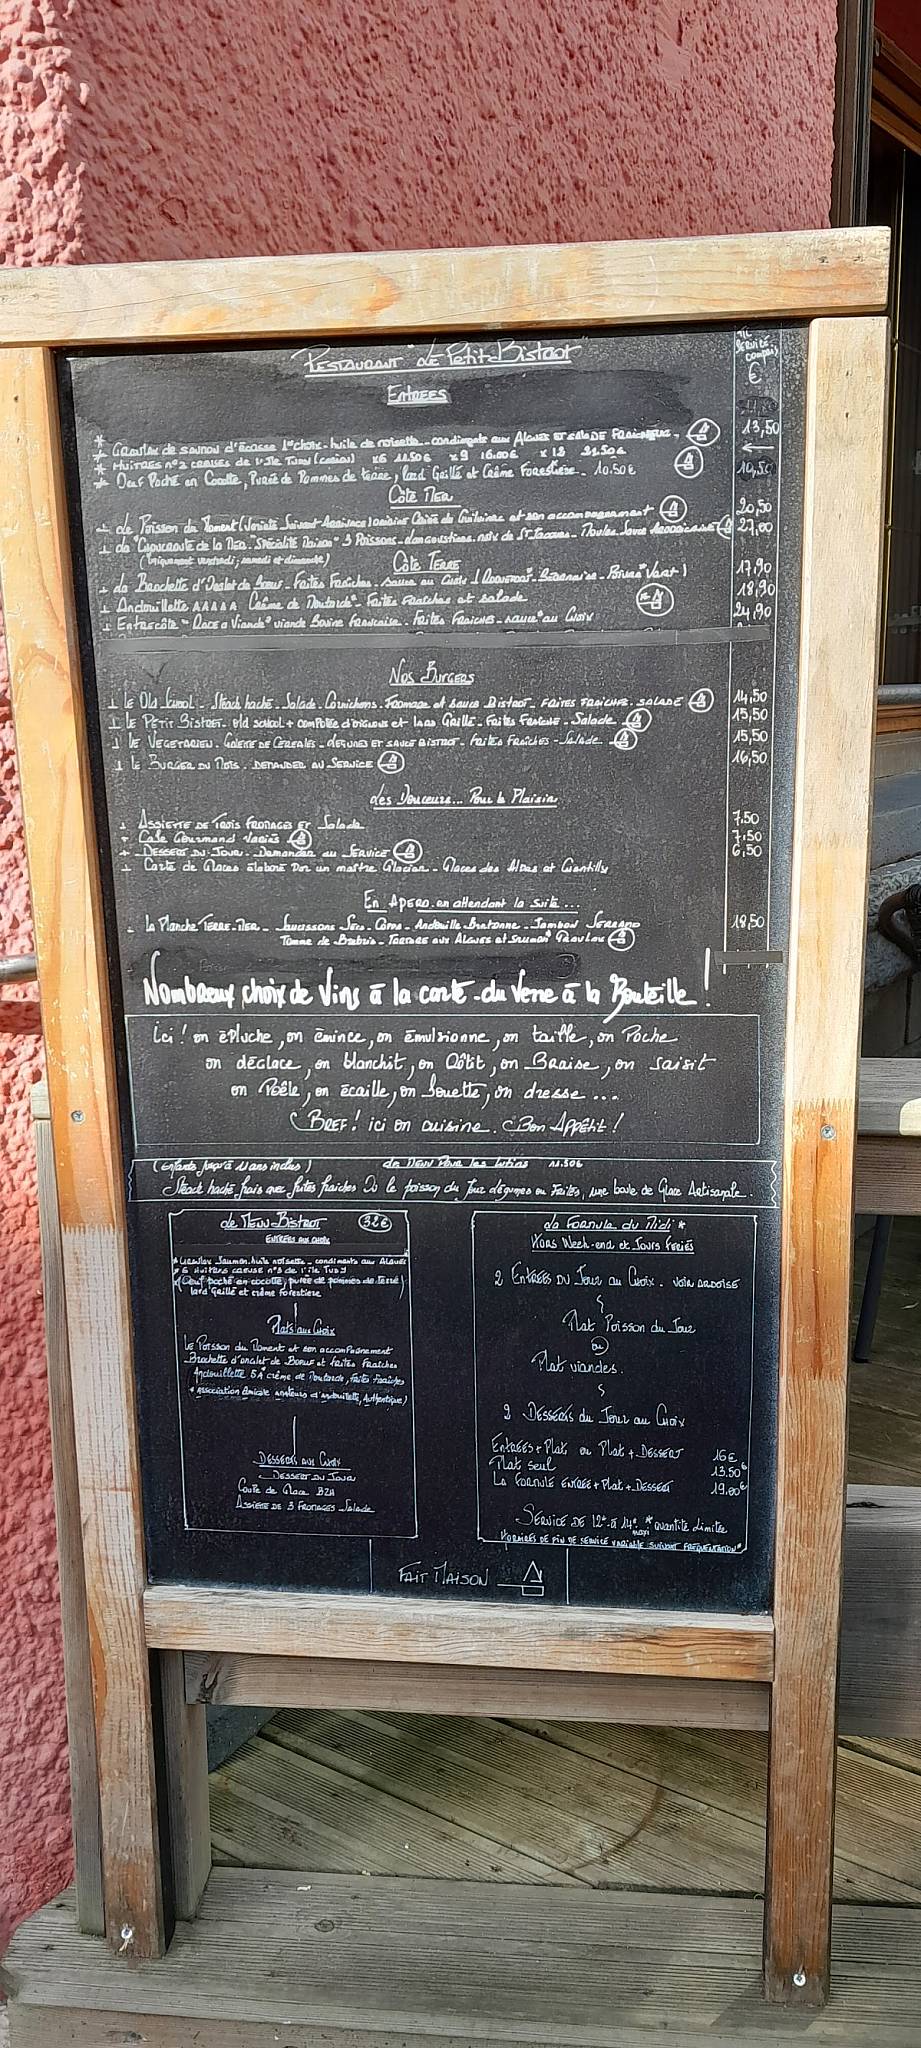 Restaurant "Le Petit-Bistrot"
TTC SERVICE compris €
Entrees
* Gravlax de saumon d'Écosse 1er choix - huile de noisette - condiments aux Algues et salade Fraicheur. 13,50
* Huitres n°3 creuses de l'Ile Tudy x6 11.50€ x9 16.00€ x12 21.50€
* Oeuf Poché en Cocotte, Purée de Pommes de terre, lard Grillé et Crème Forestière - 10.50€ 10,50
Côté Mer
Le Poisson du Moment (Variété Suivant Arrivage) origine Criée du Guilvinec et son accompagnement 20,50
La "Choucroute de la Mer - Spécialité Maison" 3 Poissons - Langoustines - noix de St Jacques - Moules Sauce Armoricaine
(Uniquement vendredi, samedi et dimanche)
Côté Terre
La Brochette d'Onglet de Boeuf - Frites Fraîches - sauce au Choix (Roquefort - Béarnaise - Poivre Vert) 17,90
Andouillette AAAAA Crème de Moutarde - Frites Fraîches et salade 18,90
Entrecôte "Race à Viande" viande Bovine Française - Frites Fraiches - sauce au Choix 24,90
Nos Burgers
Le Old School - Steak haché - Salade - Cornichons - Fromage et sauce Bistrot - FRITES FRAÎCHES - SALADE 14,50
Le Petit Bistrot - old school + compotée d'oignons et lard Grillé - Frites Fraîche - Salade 15,50
Le Vegetarien - Galette de Céréales - légumes et sauce Bistrot - Frites Fraîches - Salade 15,50
Le Burger du Mois - demander au Service 16,50
Les Douceurs... Pour le Plaisir
Assiette de Trois Fromages et Salade 7.50
Café Gourmand Variés 7.50
Dessert du Jour - Demander au Service 6,50
Carte de Glaces élaboré Par un maître Glacier - Glaces des Alpes et Chantilly
En Apero en attendant la suite...
La Planche Terre-Mer - Saucissons Secs - Coppa - Andouille Bretonne - Jambon Serrano 18,50
Tomme de Brebis - Tartare aux Algues et saumon Gravlax
Nombreux choix de Vins à la carte - du Verre à la Bouteille !
Ici ! on épluche, on émince, on émulsionne, on taille, on Poche
on déglace, on blanchit, on Rôtit, on Braise, on saisit
on Poêle, on écaille, on fouette, on dresse ...
Bref ! ici on cuisine. Bon Appétit !
(Enfants jusqu'à 11 ans inclus) Le Menu Pour les lutins 11.50€
Steak haché frais avec frites fraiches Ou le poisson du Jour légumes ou Frites, une boule de Glace Artisanale.
Le Menu Bistrot 32€
Entrées aux choix
* Gravlax Saumon huile noisette - condiments aux Algues
* 6 Huitres creuse n°3 de l'île Tudy
(Oeuf poché en cocotte, purée de pommes de terre
lard Grillé et crème forestière
Plats aux Choix
Le Poisson du Moment et son accompagnement
Brochette d'onglet de Boeuf et frites Fraîches
Andouillette 5A* crème de Moutarde, Frites Fraîches
* Association Amicale amateurs d'andouillette Authentique)
Desserts aux Choix
Dessert du Jour
Coupe de Glace BZH
Assiette de 3 Fromages Salade
La Formule du Midi *
Hors Week-end et Jours Feriés
2 Entrées du Jour au Choix - voir ardoise
Plat Poisson du Jour
ou
Plat viandes.
2 Desserts du Jour au Choix
Entrées + Plat ou Plat + Dessert 16€
Plat seul 13.50€
La Formule entrée + Plat + Dessert 19.00€
Service de 12h à 14h maxi * quantité Limitée
Horaires de fin de service variable suivant frequentation*
Fait Maison